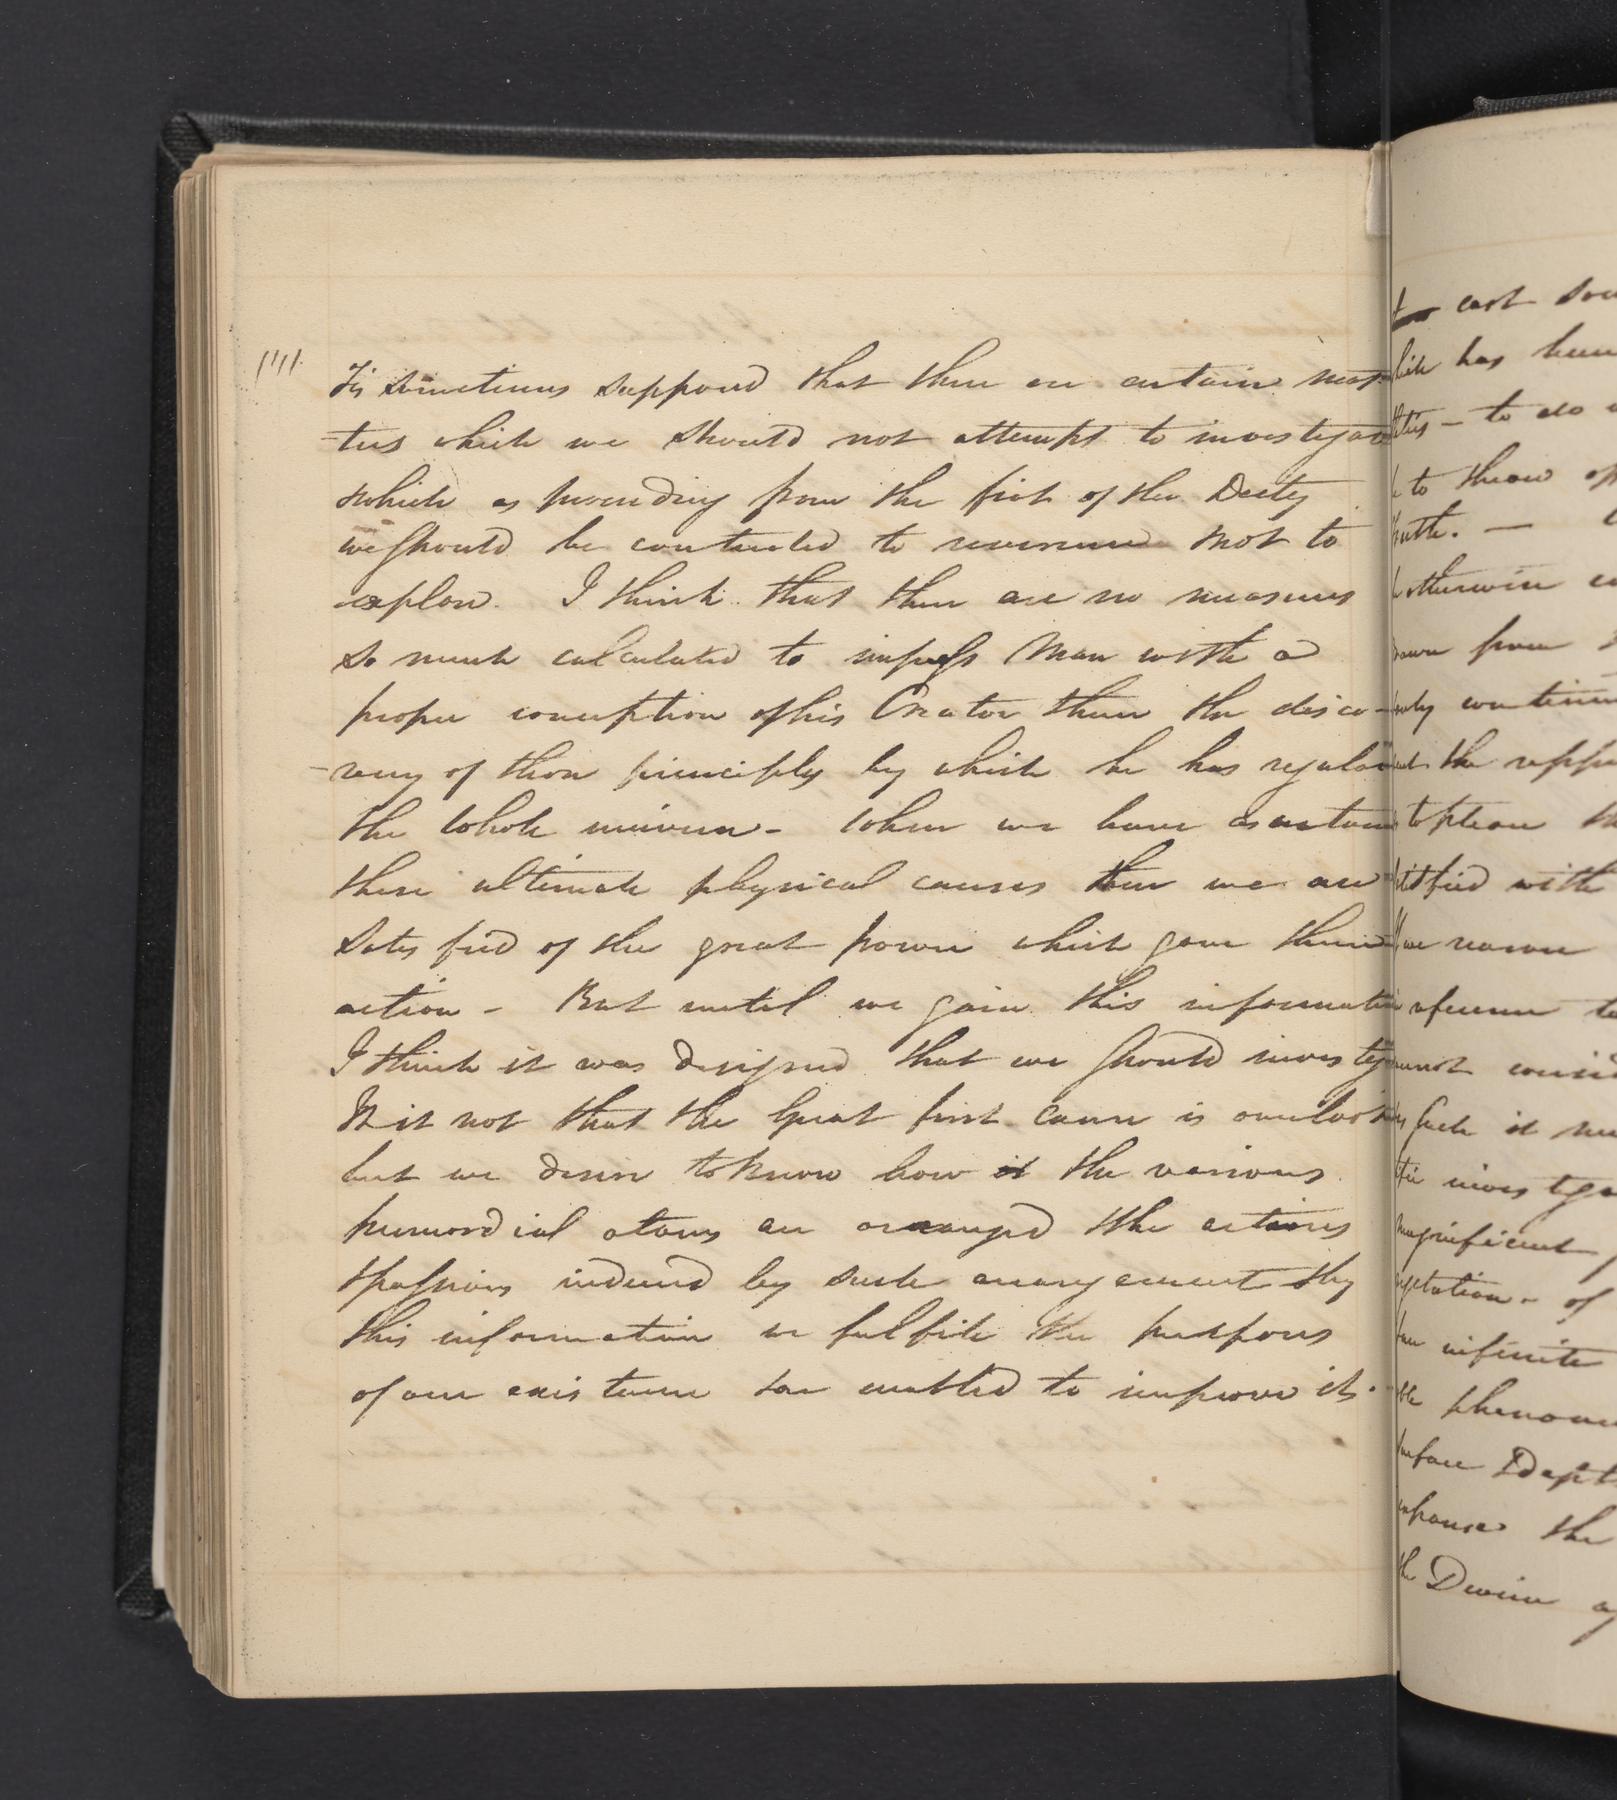 Tis sometimes supposed that there are certain mat-
-ters which we should not attempt to investigate
which as proceeding from the fiat of the Deity
we should be contented to reverence not to
explore. I think that there are no measures
so much calculated to impress Man with a
proper conception of his Creator than the disco-
-very of those principles by which he has regulated
the whole universe - When we have ascertained
these ultimate physical causes then we are
satisfied of the great power which gave them
action - But until we gain this information
I think it was designed that we should investigate
Is it not that the Great first Cause is overlooked
but we desire to know how the various
primordial atoms are arranged & the actions
& passions induced by such arrangement & by
this information we fulfile the purposes
of our existence & are enabled to improve it.
cast
has been
to do
to throw
otherwise
from
the
with
reason
to
not
it
magnificent
of
infinite
surface Depth
the
the Divine